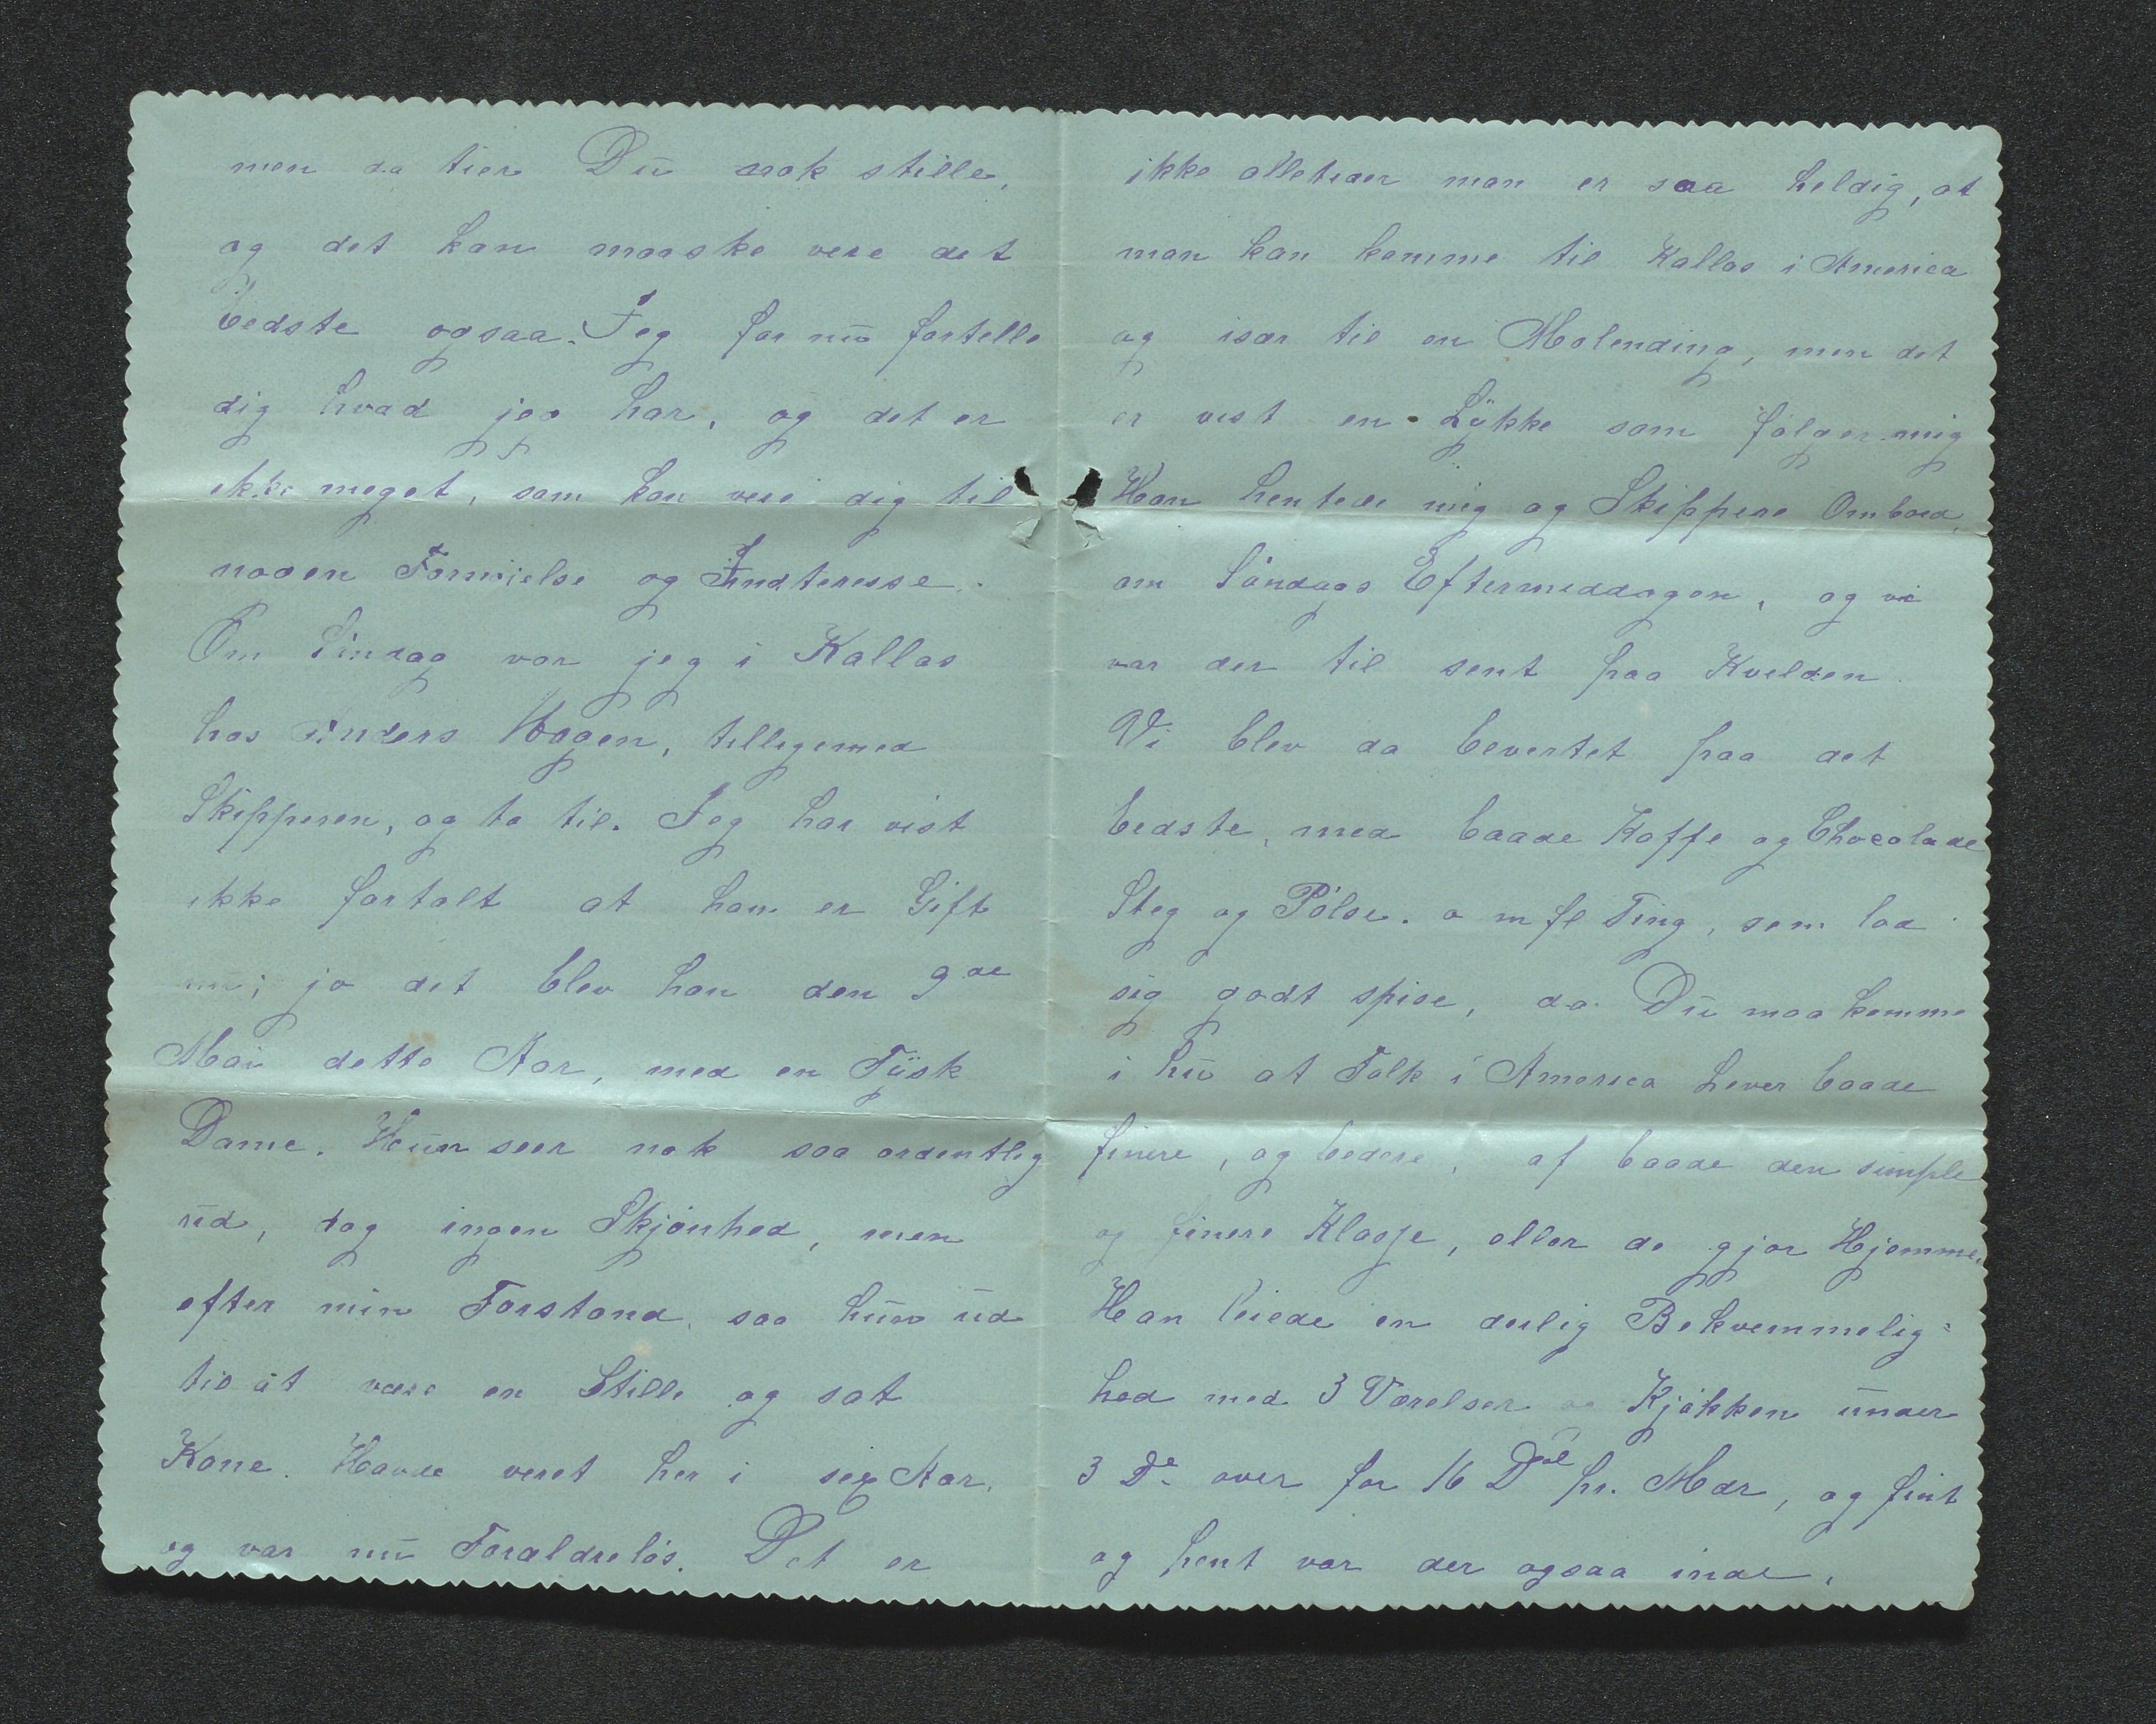 men da tier Du nok stille,
og det kan maaske vere det
bedste ogsaa. Jeg for nu fortelle
dig hvad jeg har, og det er
ikke meget, som kan vere dig til
nogen Fornøielse og Indteresse.
Om Søndag var jeg i Kallas
hos Anders Hagen, tilligemed
Skipperen, og to til. Jeg har vist
ikke fortalt at han er Gift
nu; jo det blev han den 9de
Mai dette Aar, med en Tysk
Dame. Hun seer nok saa ordentlig
ud, dog ingen Skjønhed, men
efter min Forstand saa hun ud
til at være en Stille og sat
Kone. Havde veret her i sex Aar,
og var nu Foraldreløs. Det er
ikke alletider man er saa heldig, at
man kan komme til Kallas i America
og især til en Molending, men det
er vist en Lykke som følger mig
Han hentede mig og Skippere Ombord
om Søndags Eftermeddagen, og vi
var der til sent paa Kvelden.
Vi blev da bevertet paa det
bedste, med baade Kaffe og Chocolade
Steg og Pølse. o m fl Ting, som lod
sig godt spise, da Du maa komme
i hu at Folk i America Lever baade
finere, og bedere, af baade den simple
og finere Klasse, eller de gjør Hjemme.
Han leiede en deilig Bekvemmelig=
hed med 3 Værelser og Kjøkken under
3 De over for 16 Dol pr. Mdr, og fint
og pent var der ogsaa inde.